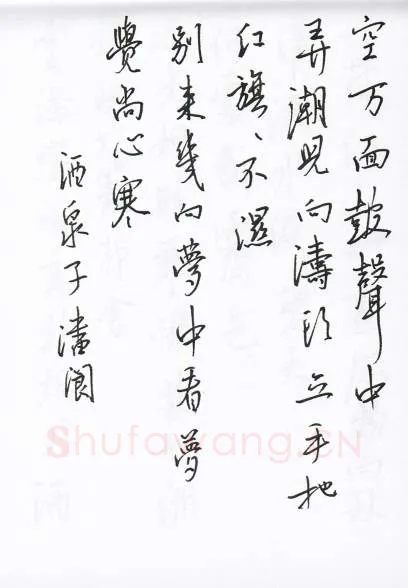 空万面鼓聲中
弄潮兒向濤頭立手把
红旗、不濕
别来幾向夢中看夢
覺尚心寒
酒泉子潘阆
Shufawang.CN